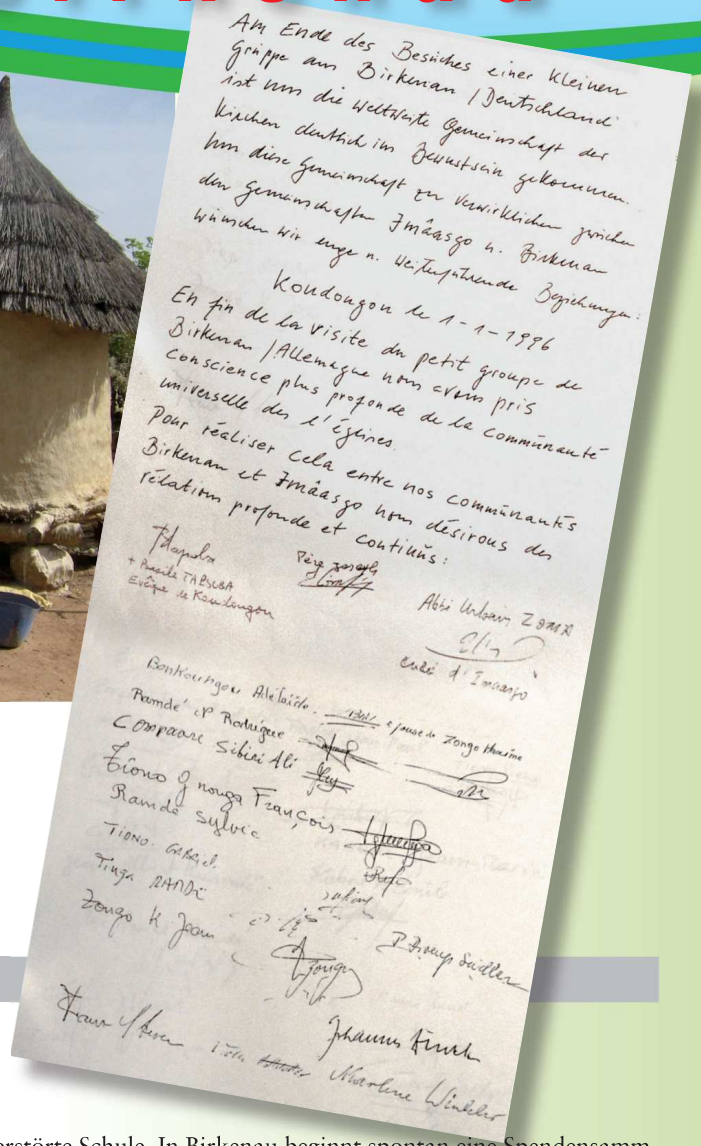 Am Ende des Besuches einer kleinen
Gruppe aus Birkenau / Deutschland
ist uns die weltweite Gemeinschaft der
Kirchen deutlich im Bewustsein gekommen.
Um diese Gemeinschaft zu verwirklichen zwischen
den Gemeinschaften Imâasgo u. Birkenau
wünschen wir enge u. weiterführende Beziehungen:
Koudougou le 1-1-1996
En fin de la visite du petit groupe de
Birkenau / Allemagne nous avons pris
conscience plus profonde de la communauté
universelle des l'églises.
Pour réaliser cela entre nos communautés
Birkenau et Imâasgo nous désirons des
rélations profonde et continüs:
+ Basile TAPSOBA
Evêque de Koudougou
Père Joseph
Abbé Urbain ZONGO
curé d'Imaasgo
Bonkoungou Adélaïde épouse de Zongo
Ramdé P Rodrigue
Compaore Sibiri Ali
Tiono G nouga François
Ramdé Sylvie
TIONO GABRIEL
Tinga RAMDÉ
Zongo K Jean
Johannes
Marlene Winkler
erstörte Schule. In Birkenau beginnt spontan eine Spendensamm